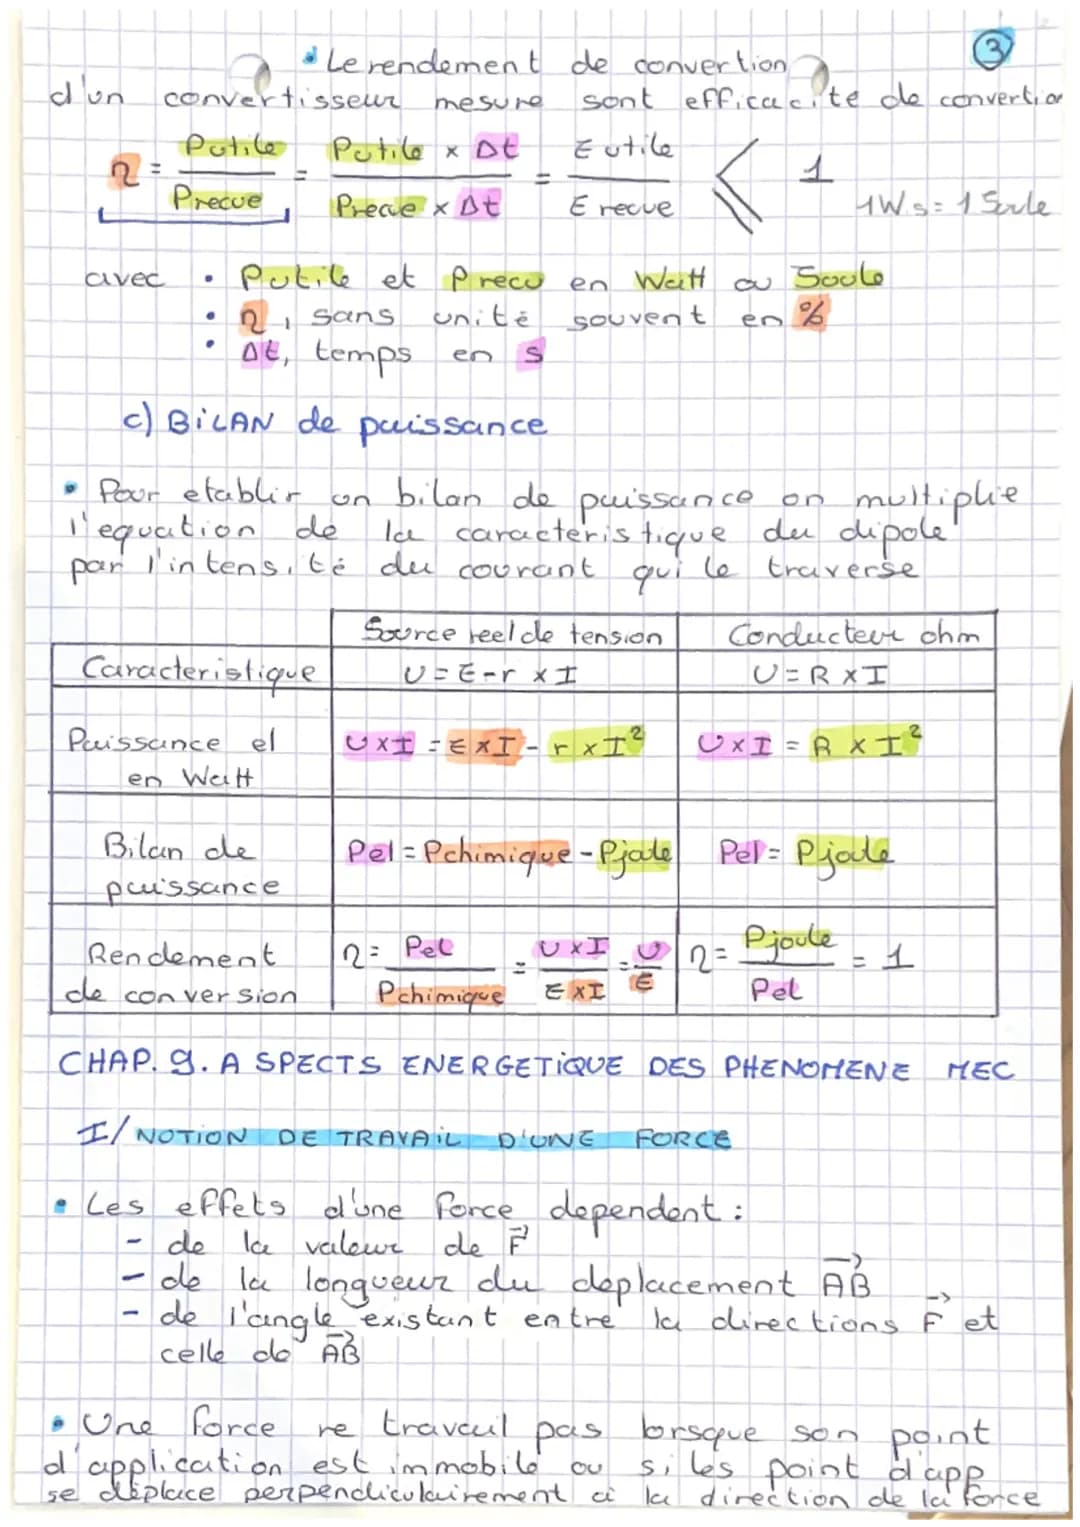 ③
• Le rendement de convertion
d'un convertisseur mesure sont efficacite de convertion
η = Putile / Precue = Putile × Δt / Precue × Δt = E utile / E recue ⩽ 1
1 W s = 1 Joule
avec • Putile et Precu en Watt ou Joule
• η, sans unité souvent en %
• Δt, temps en s
c) BiLAN de puissance
• Pour etablir un bilan de puissance on multiplie
l'equation de la caracteristique du dipole
par l'intensité du courant qui le traverse
Source reel de tension | Conducteur ohm
Caracteristique | U = E - r × I | U = R × I
Puissance el | U × I = E × I - r × I² | U × I = R × I²
en Watt
Bilan de | Pel = Pchimique - Pjoule | Pel = Pjoule
puissance
Rendement | η = Pel / Pchimique = U × I / E × I = U / E | η = Pjoule / Pel = 1
de conversion
CHAP. 9. ASPECTS ENERGETiQUE DES PHENOMENE MEC
I/ NOTION DE TRAVAiL D'UNE FORCE
• Les effets d'une force dependent :
- de la valeur de F⃗
- de la longueur du deplacement A⃗B⃗
- de l'angle existant entre la directions F⃗ et
celle de A⃗B⃗
• Une force ne travail pas lorsque son point
d'application est immobile ou si les point d'app
se déplace perpendiculairement à la direction de la force